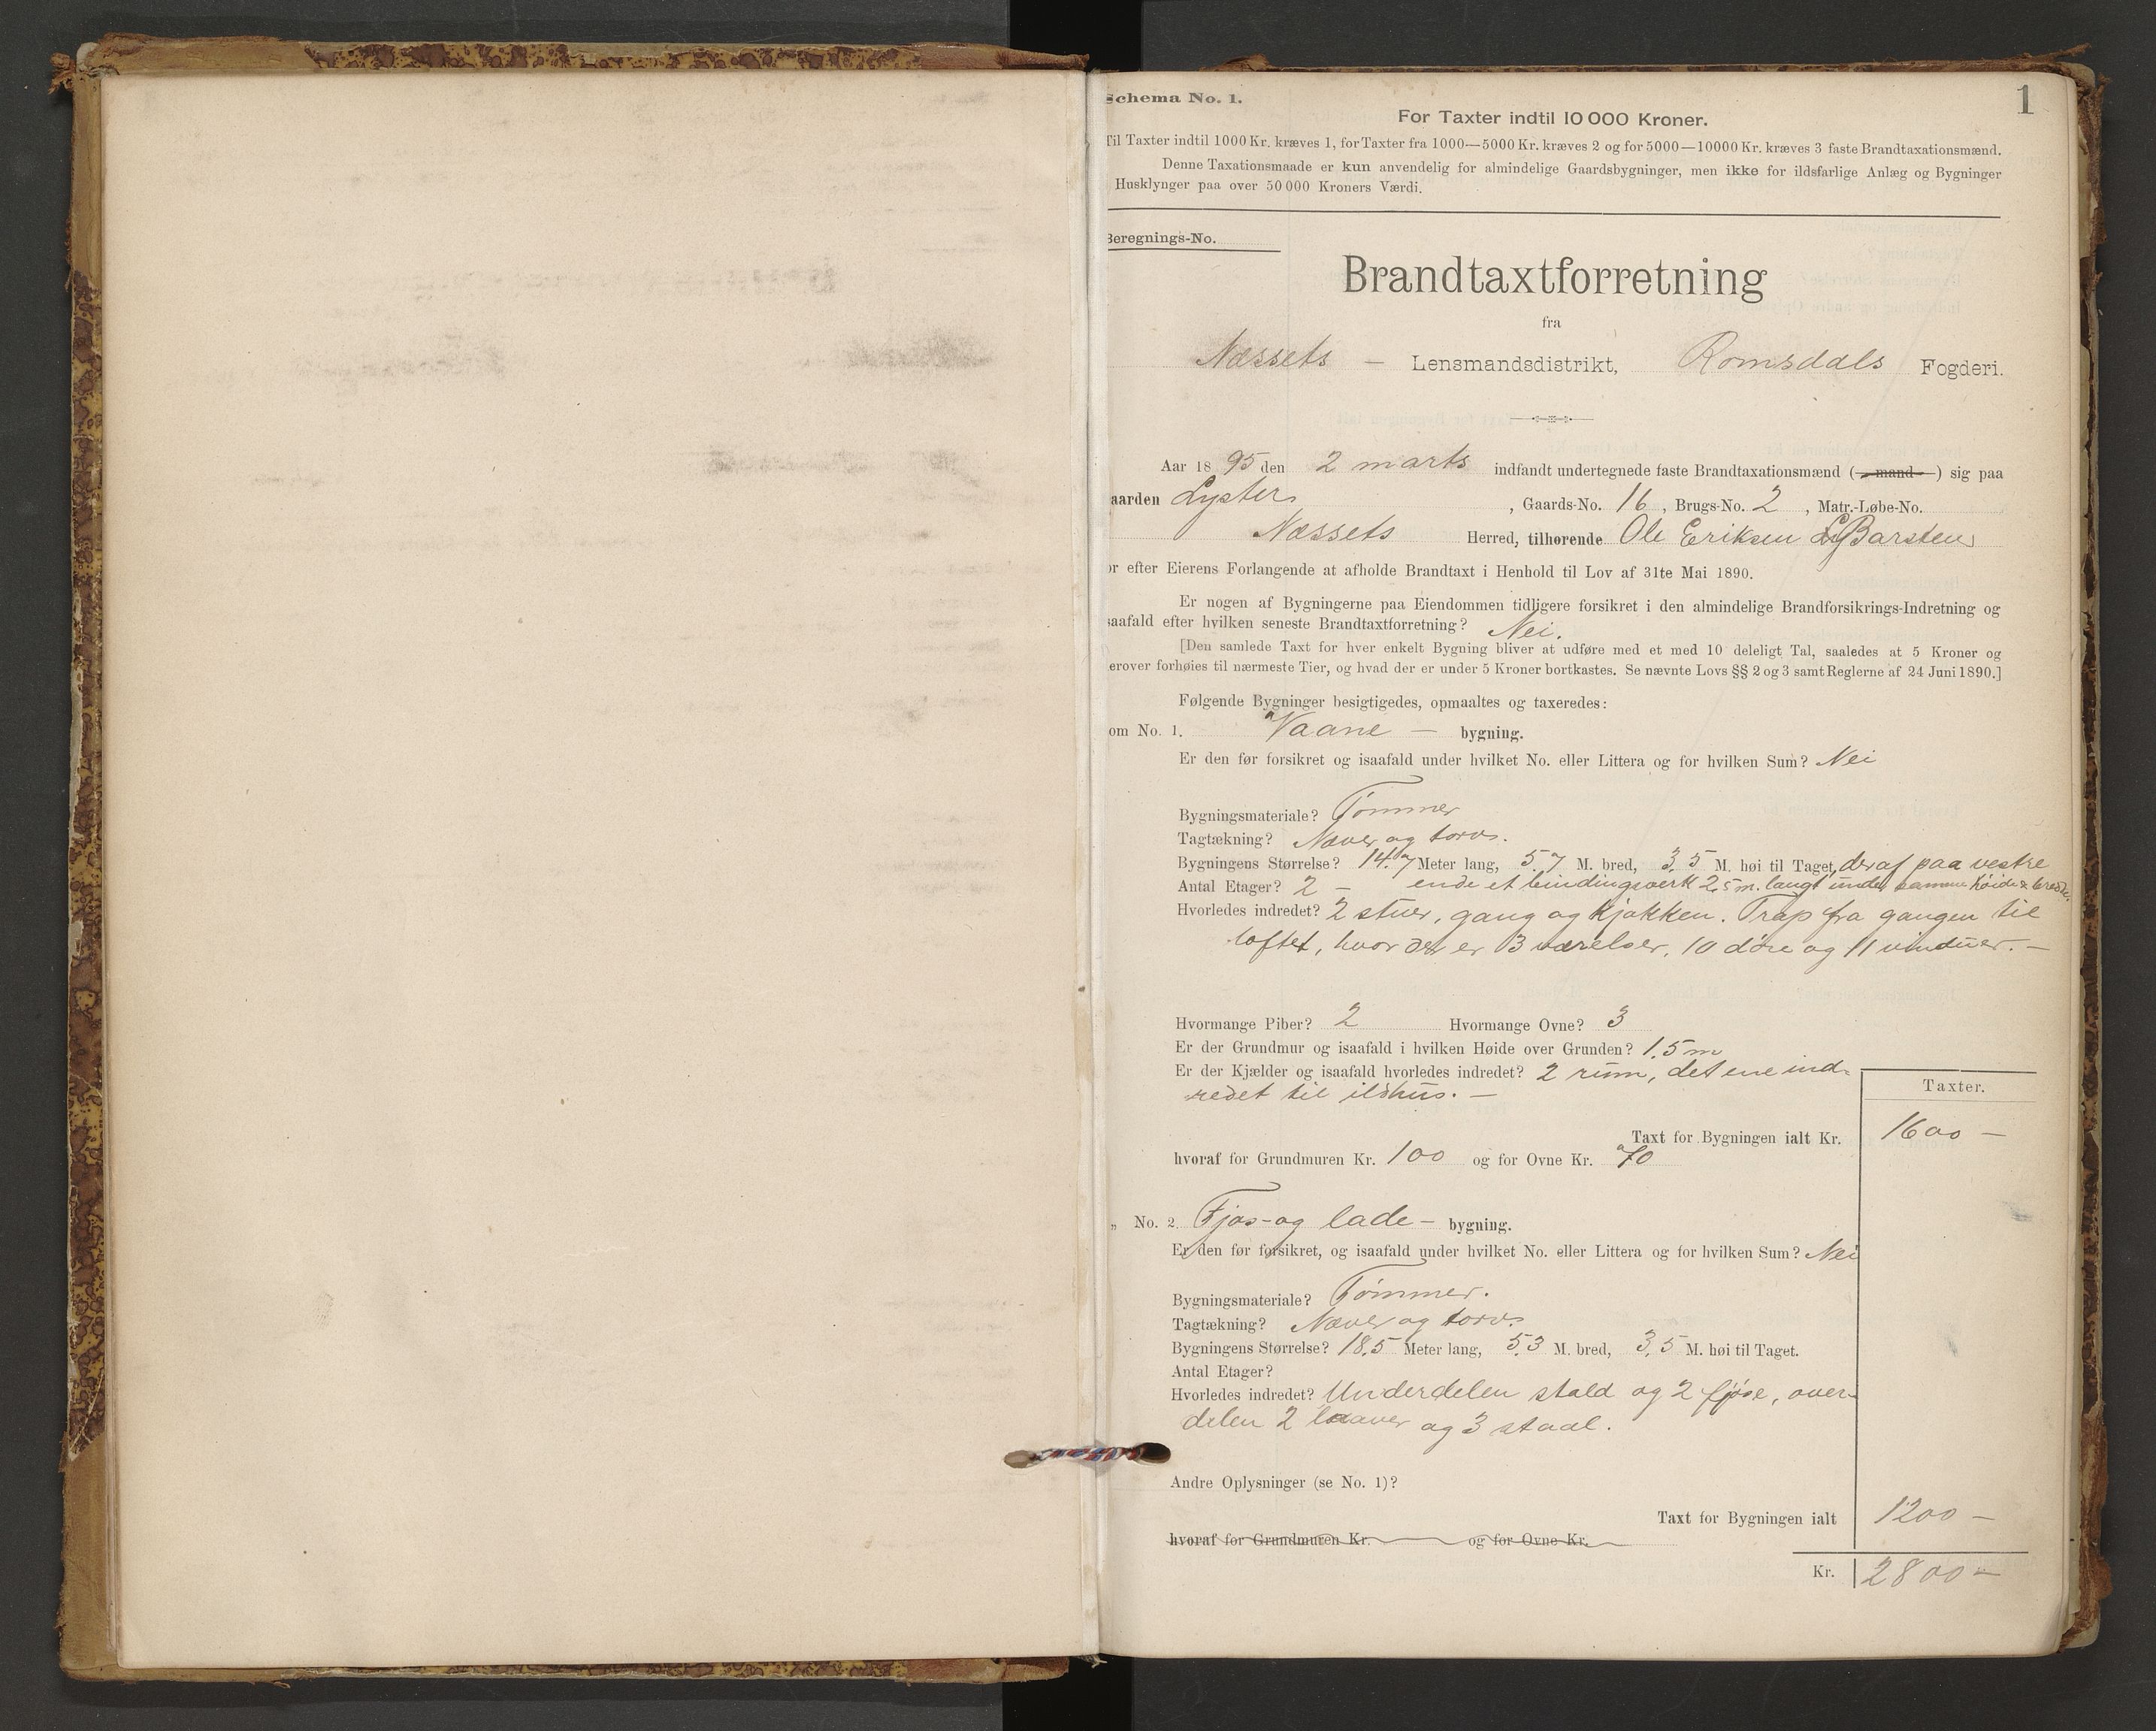 Schema No. 1.
1
For Taxter indtil 10 000 Kroner.
Til Taxter indtil 1000 Kr. kræves 1, for Taxter fra 1000—5000 Kr. kræves 2 og for 5000—10000 Kr. kræves 3 faste Brandtaxationsmænd.
Denne Taxationsmaade er kun anvendelig for almindelige Gaardsbygninger, men ikke for ildsfarlige Anlæg og Bygninger
Husklynger paa over 50 000 Kroners Værdi.
Beregnings-No.
Brandtaxtforretning
fra
Næssets — Lensmandsdistrikt, Romsdals Fogderi.
Aar 18 95 den 2 marts indfandt undertegnede faste Brandtaxationsmænd (mand) sig paa
aarden Lyster, Gaards-No. 16, Brugs-No. 2, Matr.-Løbe-No.
Næssets Herred, tilhørende Ole Eriksen Barsten
or efter Eierens Forlangende at afholde Brandtaxt i Henhold til Lov af 31te Mai 1890.
Er nogen af Bygningerne paa Eiendommen tidligere forsikret i den almindelige Brandforsikrings-Indretning og
saafald efter hvilken seneste Brandtaxtforretning? Nei.
[Den samlede Taxt for hver enkelt Bygning bliver at udføre med et med 10 deleligt Tal, saaledes at 5 Kroner og
erover forhøies til nærmeste Tier, og hvad der er under 5 Kroner bortkastes. Se nævnte Lovs §§ 2 og 3 samt Reglerne af 24 Juni 1890.]
Følgende Bygninger besigtigedes, opmaaltes og taxeredes:
om No. 1. Vaane — bygning.
Er den før forsikret og isaafald under hvilket No. eller Littera og for hvilken Sum? Nei
Bygningsmateriale? Tømmer
Tagtækning? Næver og torv.
Bygningens Størrelse? 14.7 Meter lang, 5.7 M. bred, 3.5 M. høi til Taget, deraf paa vestre
Antal Etager? 2 — ende et bindingsverk 2,5 m. langt under samme høide & brede.
Hvorledes indredet? 2 stuer, gang og kjøkken. Trap fra gangen til
loftet, hvor der er 3 værelser, 10 døre og 11 vinduer. —
Hvormange Piber? 2 Hvormange Ovne? 3
Er der Grundmur og isaafald i hvilken Høide over Grunden? 1.5 m
Er der Kjælder og isaafald hvorledes indredet? 2 rum, det ene ind-
redet til ildhus. —
Taxter.
Taxt for Bygningen ialt Kr. 1600 —
hvoraf for Grundmuren Kr. 100 og for Ovne Kr. 70
„ No. 2. Fjøs- og lade — bygning.
Er den før forsikret, og isaafald under hvilket No. eller Littera og for hvilken Sum? Nei
Bygningsmateriale? Tømmer.
Tagtækning? Næver og torv.
Bygningens Størrelse? 18.5 Meter lang, 5.3 M. bred, 3.5 M. høi til Taget.
Antal Etager?
Hvorledes indredet? Underdelen stald og 2 fjøse, over-
delen 2 laaver og 3 staal.
Andre Oplysninger (se No. 1)?
Taxt for Bygningen ialt 1200 —
hvoraf for Grundmuren Kr. og for Ovne Kr.
Kr. 2800 —